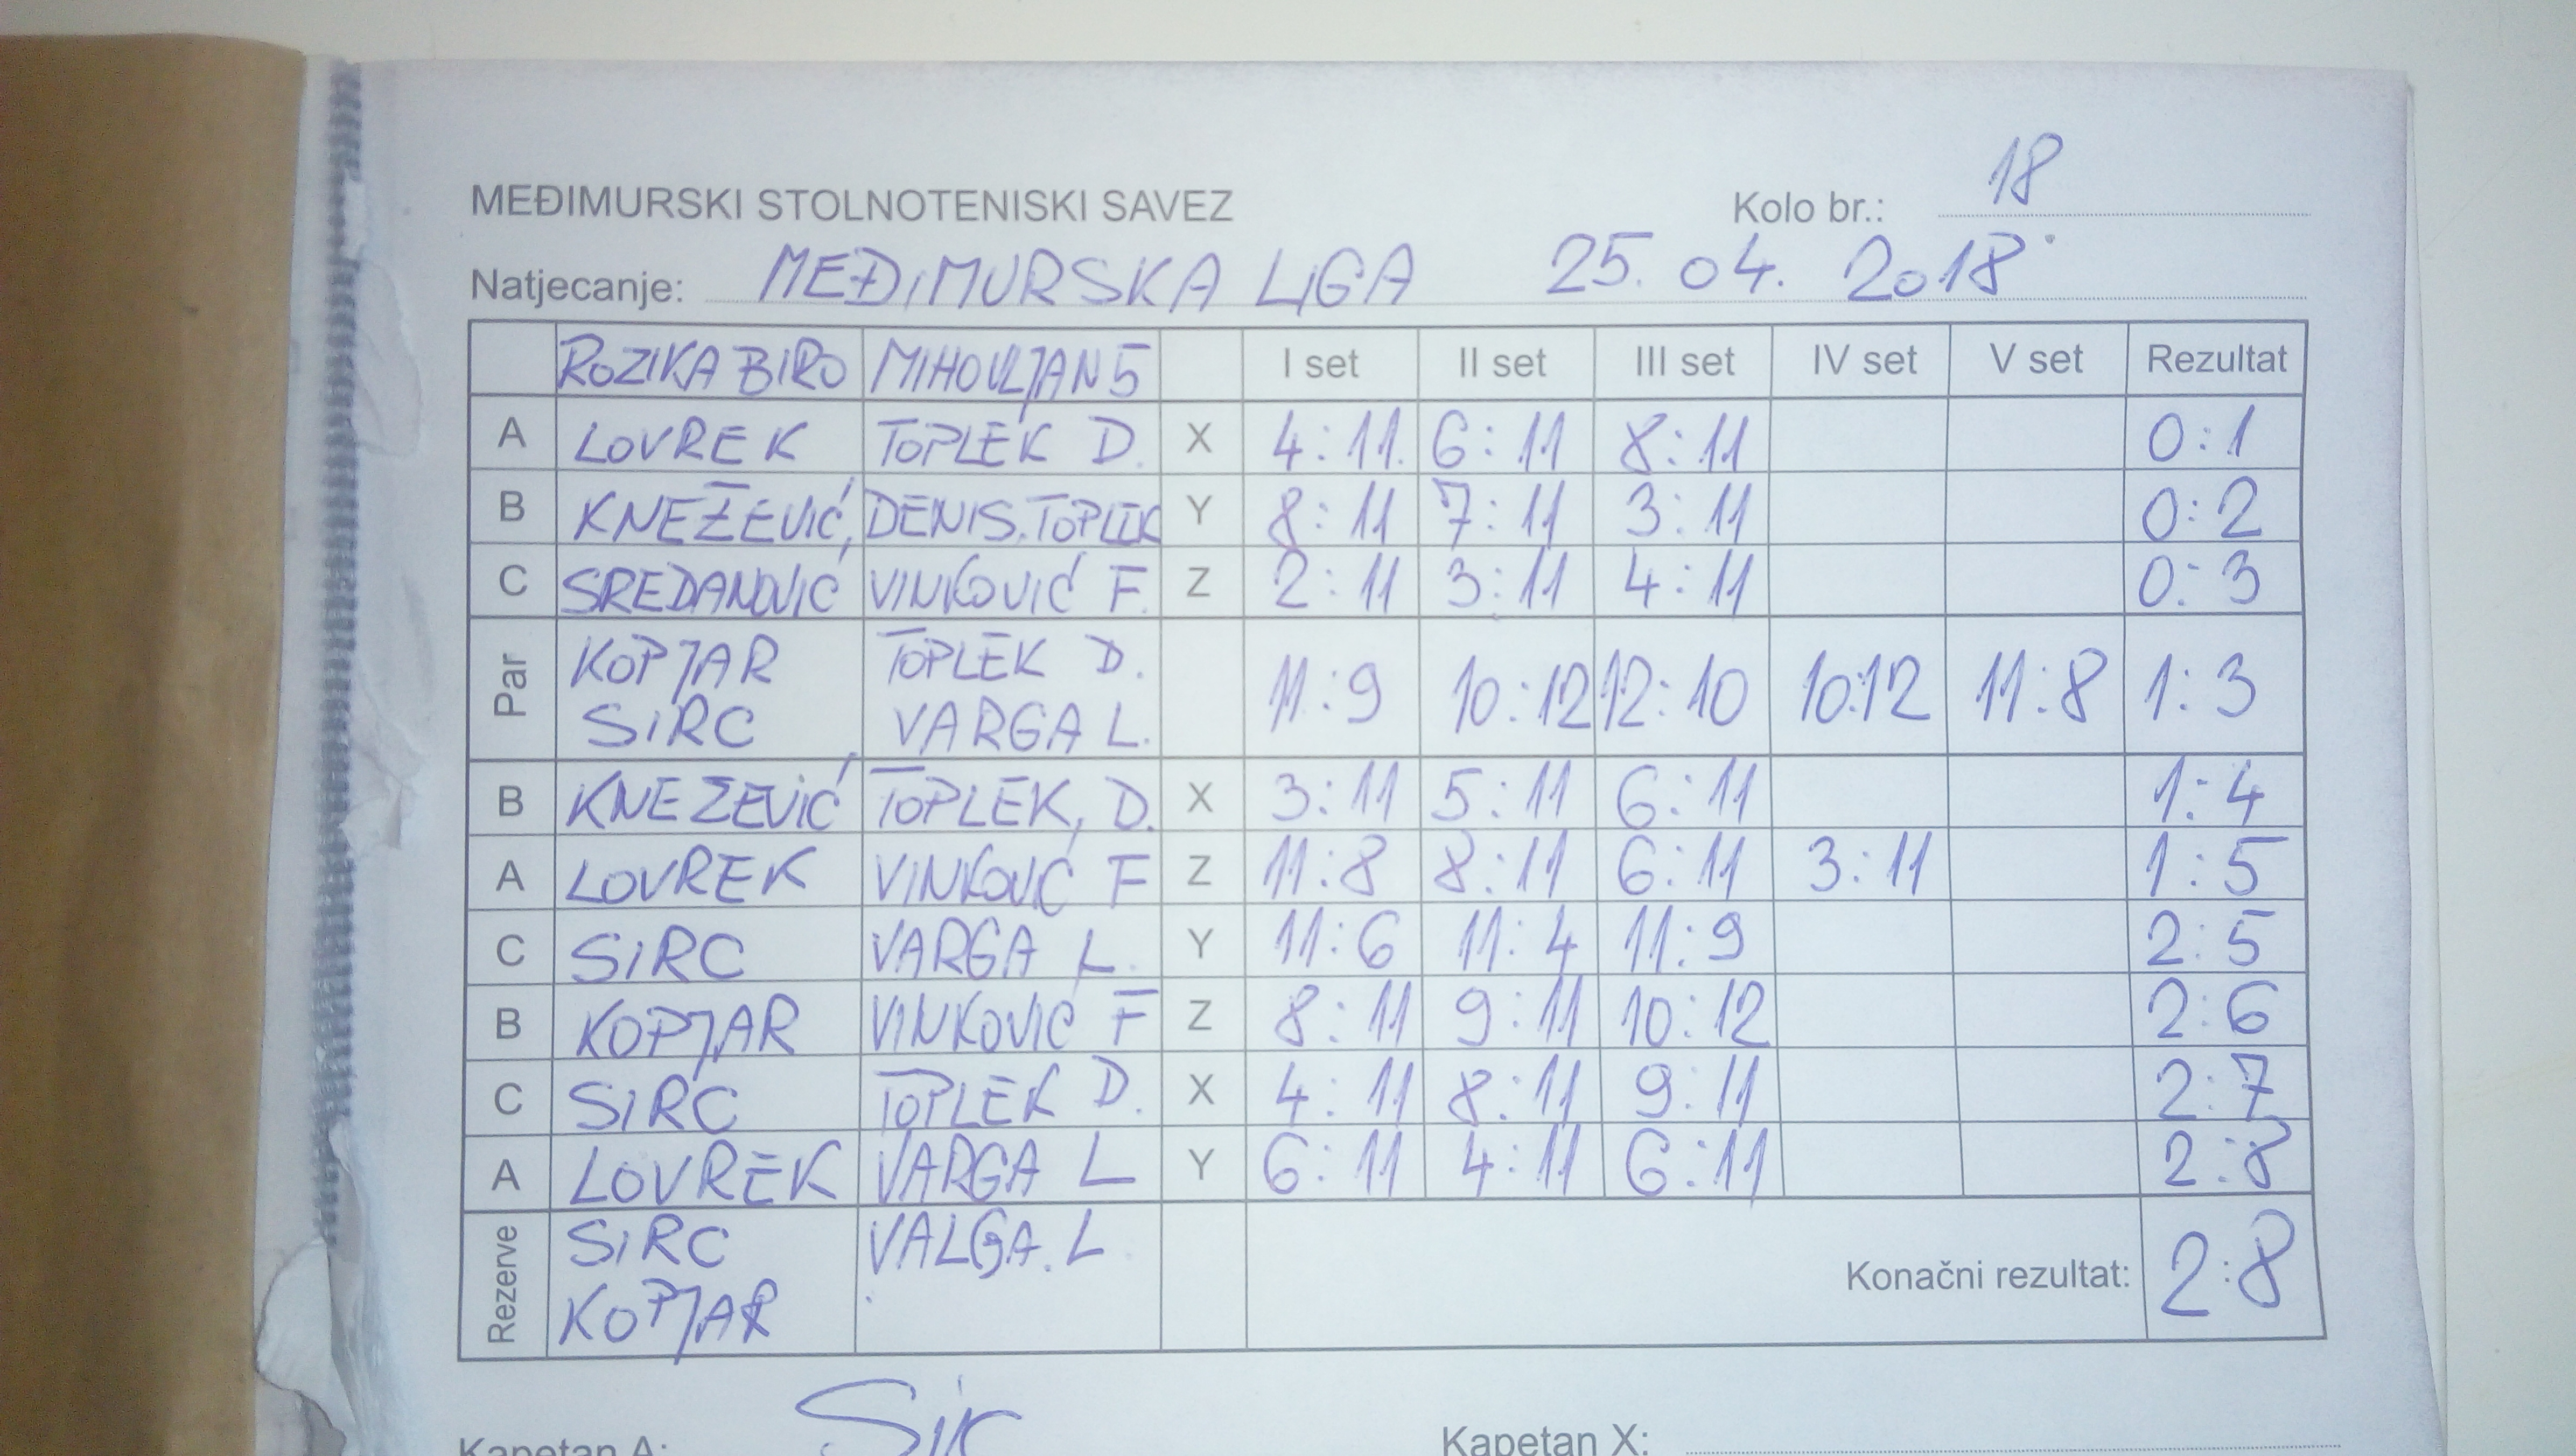 MEĐIMURSKI STOLNOTENISKI SAVEZ Kolo br.: 18
Natjecanje: MEĐIMURSKA LIGA 25. 04. 2018.
ROZIKA BIRO MIHOVLJAN 5 I set II set III set IV set V set Rezultat
A LOVREK TOPLEK D. X 4:11 6:11 8:11 0:1
B KNEŽEVIĆ, DENIS.TOPLEK Y 8:11 7:11 3:11 0:2
C SREDANOVIĆ VINKOVIĆ F. Z 2:11 3:11 4:11 0:3
Par KOPJAR TOPLEK D.
SIRC VARGA L. 11:9 10:12 12:10 10:12 11:8 1:3
B KNEZEVIĆ TOPLEK, D. X 3:11 5:11 6:11 1:4
A LOVREK VINKOVIĆ F Z 11:8 8:11 6:11 3:11 1:5
C SIRC VARGA L. Y 11:6 11:4 11:9 2:5
B KOPJAR VINKOVIĆ F Z 8:11 9:11 10:12 2:6
C SIRC TOPLEK D. X 4:11 8:11 9:11 2:7
A LOVREK VARGA L Y 6:11 4:11 6:11 2:8
Rezerve SIRC VALGA. L
KOPJAR Konačni rezultat: 2:8
Kapetan A: Kapetan X: